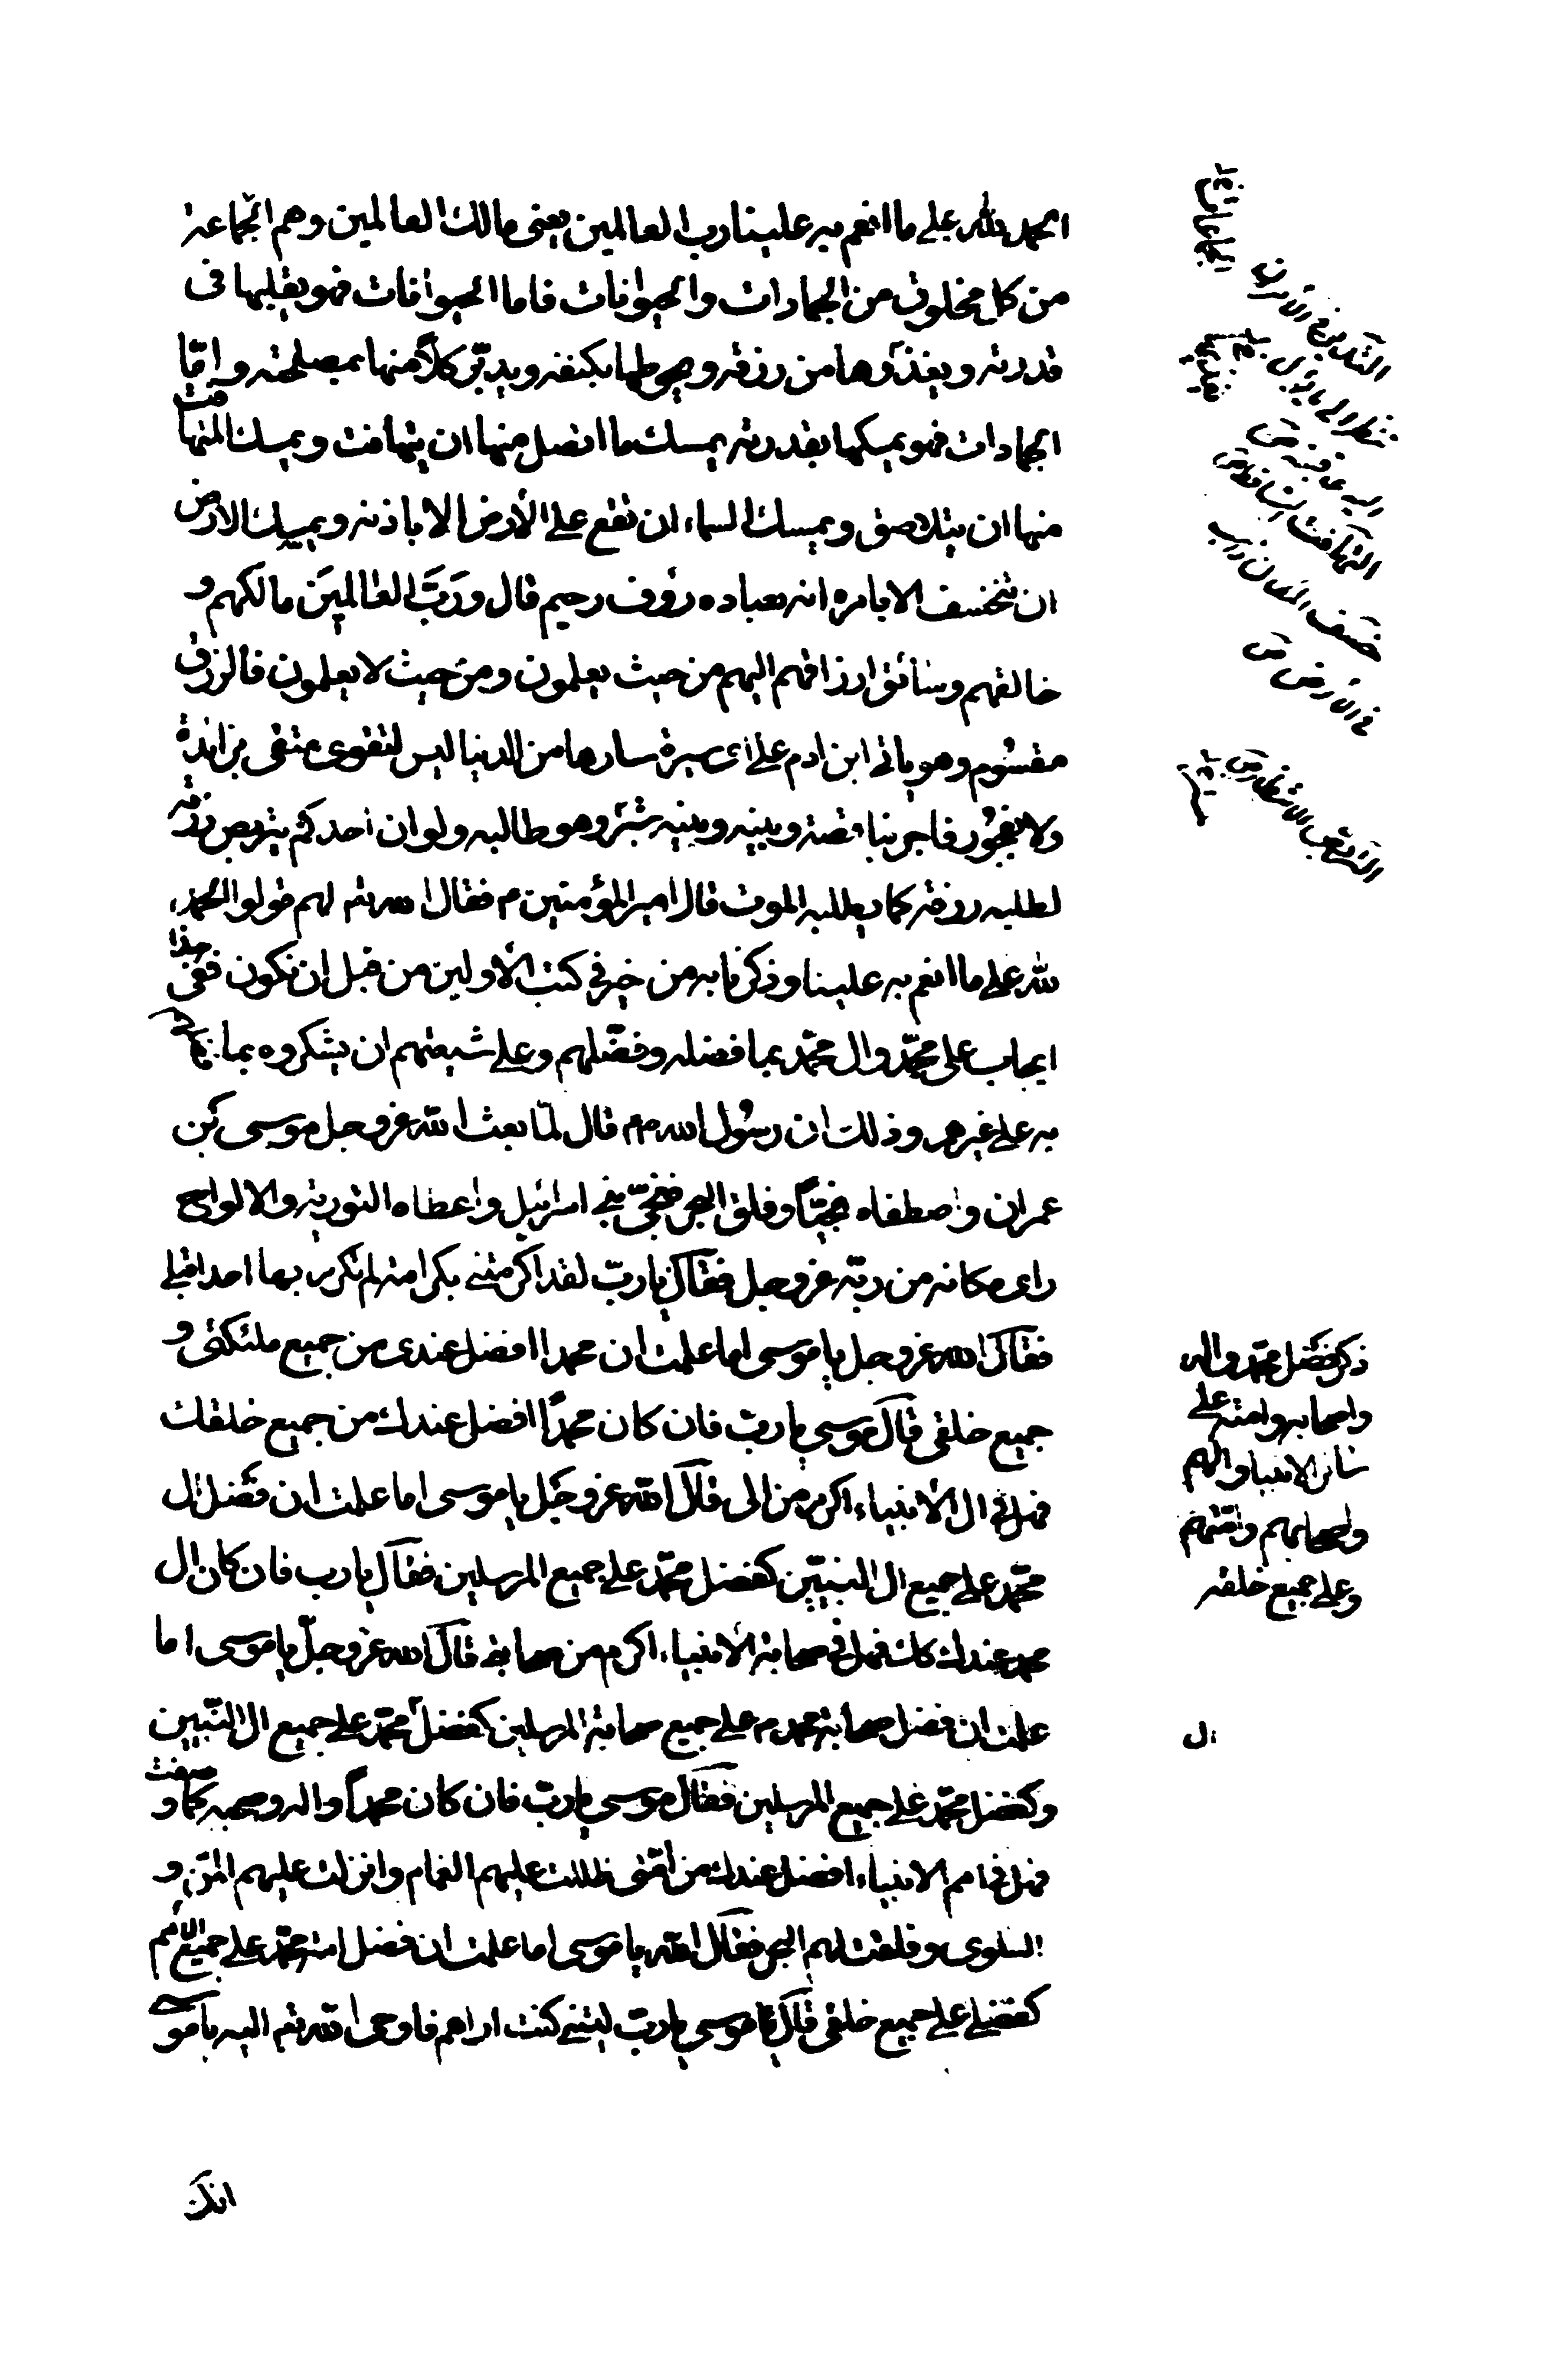 الحمد لله على ما انعم به علينا رب العالمين يعنى مالك العالمين وهم الجماعة
من كل مخلوق من الجمادات والحيوانات فاما الحيوانات فهو يقلبها فى
قدرته ويغذوها من رزقه ويحوطها بكنفه ويدبّر كلاً منها بمصلحته وامّا
الجمادات فهو يمسكها بقدرته يمسك ما اتصل منها ان يتهافت ويمسك المتهافت
منها ان يتلاصق ويمسك السماء ان تقع على الأرض الا باذنه ويمسك الارض
ان تنخسف الا بامره انه بعباده رؤف رحيم قال وَرَبَّ العالمِيَن مالكهم و
خالقهم وسائق ارزاقهم اليهم من حيث يعلمون ومن حيث لا يعلمون فالرزق
مقسُوم وهو ياتى ابن ادم على اى سيرة سارها من الدنيا ليس لتقوى متقى بزائدة
ولا لفجُور فاجر بناقصة وبينه وبينه ستر وهو طالبه ولو ان احدكم يتربص رزقه
لطلبه رزقه كما يطلبه الموت قال امير المؤمنين م فقال الله تم لهم قولوا الحمد
لله على ما انعم به علينا وذكرنا به من خير فى كتب الأولين من قبل ان نكون ففى هذا
ايجاب على محمّد وال محمّد بما فضله وفضّلهم وعلى شيعتهم ان يشكروه بما
به على غيرهم وذلك ان رسُول الله م قال لمّا بعث الله عز وجل موسى بن
عمران واصطفاه نجيّاً وفلق البحر فنجّى بنى اسرائيل واعطاه التورية والالواح
راى مكانه من ربّه عز وجل فقال يا ربّ لقد اكرمتنى بكرامة لم تكرم بها احدا قبلى
فقال الله عز وجل يا موسى اما علمت ان محمدا افضل عندى من جميع ملئكتى و
جميع خلقى قال موسى يا ربّ فان كان محمداً افضل عندك من جميع خلقك
فهل فى ال الأنبياء اكرم من الى قال الله عز وجَل يا موسى اما علمت ان فضل ال
محمّد على جميع ال النبيّين كفضل محمّد على جميع المرسلين فقال يا رب فان كان ال
محمد عندك كذلك فهل فى صحابة الأنبياء اكرم من صحابتى قال الله عز وجلّ يا موسى اما
علمت ان فضل صحابة محمد م على جميع صحابة المرسلين كفضل محمّد على جميع ال النّبيين
وكفضل محمّد على جميع المرسلين فقال موسى يا ربّ فان كان محمداً واله وصحبه كما وصفت
فهل فى امم الانبياء افضل عندك من امّتى ظللت عليهم الغمام وانزلت عليهم المنّ و
السلوى وفلقت لهم البحر فقال الله يا موسى اما علمت ان فضل امة محمّد على جميع الامم
كفضلى على جميع خلقى قال موسى يا ربّ ليتنى كنت اراهم فاوحى الله تم اليه يا موسى
انك
ذكر فضل محمّد واله
واصحابه وامته على
سائر الانبياء والهم
واصحابهم وامّتهم
وعلى جميع خلقه
ال